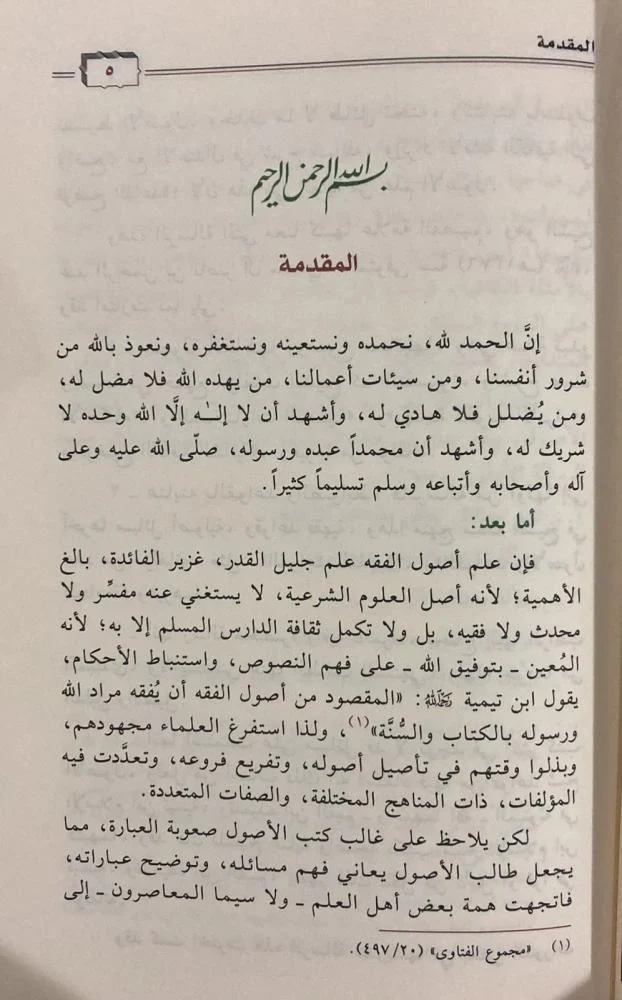 المقدمة
٥
بسم الله الرحمن الرحيم
المقدمة
إنَّ الحمد لله، نحمده ونستعينه ونستغفره، ونعوذ بالله من
شرور أنفسنا، ومن سيئات أعمالنا، من يهده الله فلا مضل له،
ومن يُضلل فلا هادي له، وأشهد أن لا إلـٰه إلَّا الله وحده لا
شريك له، وأشهد أن محمداً عبده ورسوله، صلّى الله عليه وعلى
آله وأصحابه وأتباعه وسلم تسليماً كثيراً.
أما بعد:
فإن علم أصول الفقه علم جليل القدر، غزير الفائدة، بالغ
الأهمية؛ لأنه أصل العلوم الشرعية، لا يستغني عنه مفسِّر ولا
محدث ولا فقيه، بل ولا تكمل ثقافة الدارس المسلم إلا به؛ لأنه
المُعين ـ بتوفيق الله ـ على فهم النصوص، واستنباط الأحكام،
يقول ابن تيمية رحمه الله: «المقصود من أصول الفقه أن يُفقه مراد الله
ورسوله بالكتاب والسُّنَّة»(١)، ولذا استفرغ العلماء مجهودهم،
وبذلوا وقتهم في تأصيل أصوله، وتفريع فروعه، وتعدَّدت فيه
المؤلفات، ذات المناهج المختلفة، والصفات المتعددة.
لكن يلاحظ على غالب كتب الأصول صعوبة العبارة، مما
يجعل طالب الأصول يعاني فهم مسائله، وتوضيح عباراته،
فاتجهت همة بعض أهل العلم ـ ولا سيما المعاصرون ـ إلى
(١) «مجموع الفتاوى» (٢٠/٤٩٧).